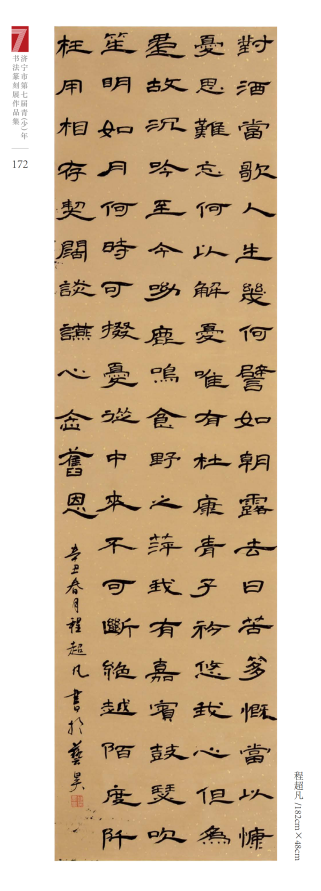 7
济宁市第七届青(少)年
书法篆刻展作品集
172
對酒當歌人生幾何譬如朝露去日苦多慨當以慷
憂思難忘何以解憂唯有杜康青子衿悠我心但為
君故沉吟至今呦鹿鳴食野之萍我有嘉賓鼓瑟吹
笙明如月何時可掇憂從中來不可斷絕越陌度阡
枉用相存契闊談讌心念舊恩
辛丑春月程超凡書於藝昊
程超凡 /182cm×48cm